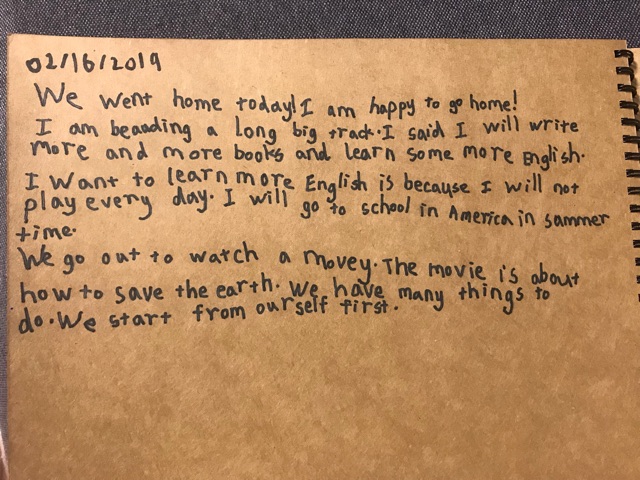 02/16/2019
We went home today! I am happy to go home!
I am beauding a long big track. I said I will write
more and more books and learn some more English.
I want to learn more English is because I will not
play every day. I will go to school in America in sammer
time.
We go out to watch a movey. The movie is about
how to save the earth. We have many things to
do. We start from ourself first.